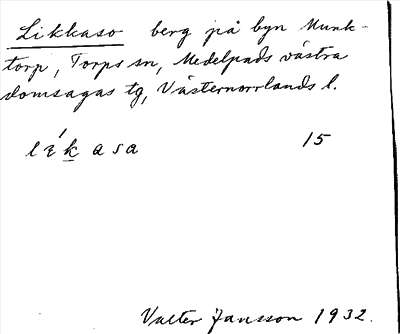 Likkaso berg på byn Munk-
torp, Torps sn, Medelpads västra
domsagas tg, Västernorrlands l.
lík̲asa 15
Valter Jansson 1932.